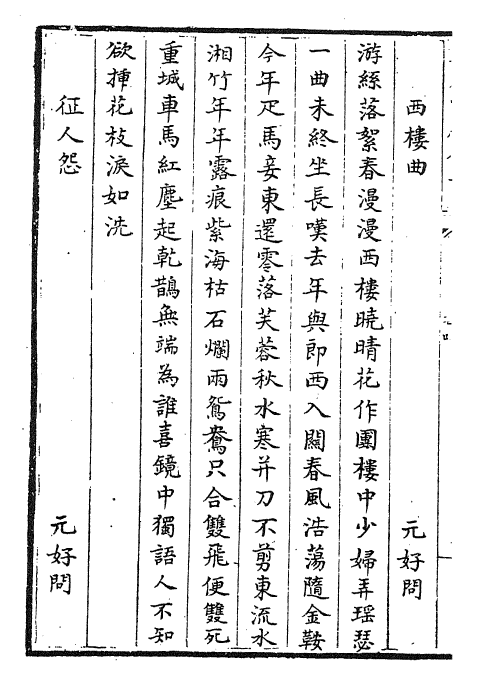 西樓曲　元好問
游絲落絮春漫漫西樓曉晴花作團樓中少婦弄瑶瑟
一曲未終坐長嘆去年與郎西入關春風浩蕩隨金鞍
今年疋馬妾東還零落芙蓉秋水寒并刀不剪東流水
湘竹年年露痕紫海枯石爛兩鴛鴦只合雙飛便雙死
重城車馬紅塵起乾鵲無端為誰喜鏡中獨語人不知
欲揷花枝淚如洗
征人怨　元好問